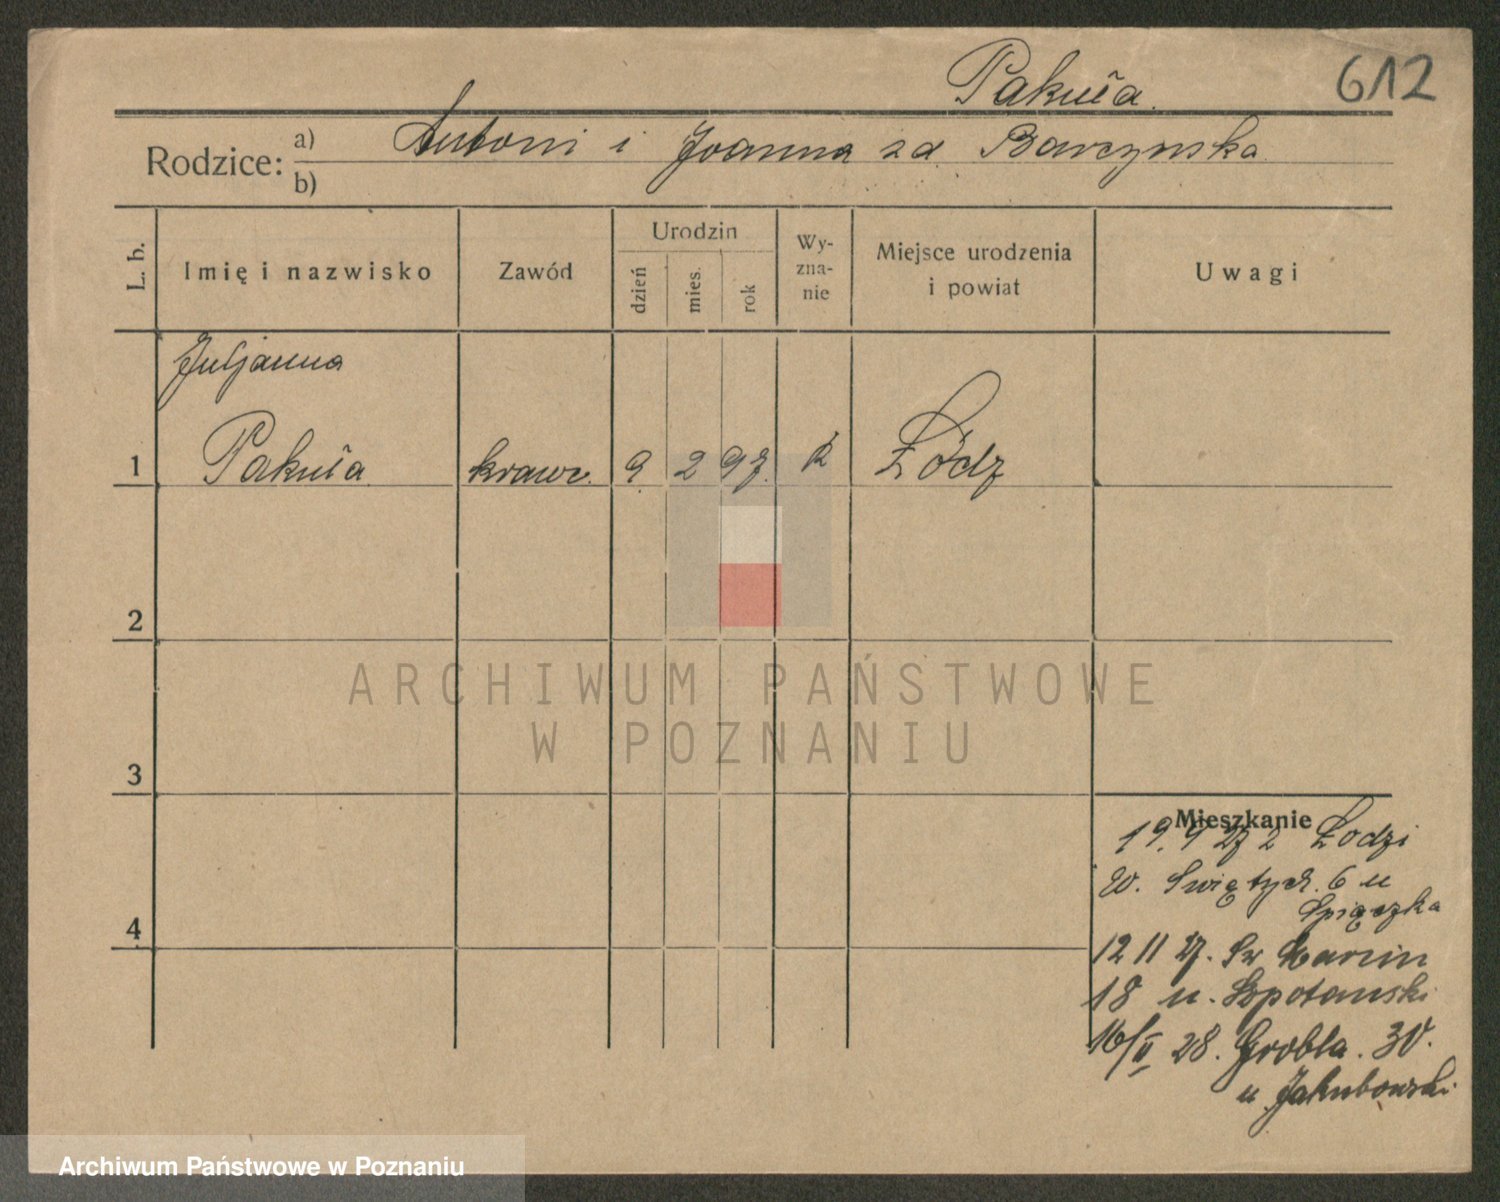 Pakuła. 612
Rodzice: a) Antoni i Joanna zd. Barczynska
b)
L. b. Imię i nazwisko Zawód Urodzin dzień mies. rok Wy-zna-nie Miejsce urodzenia i powiat Uwagi
Juljanna
1 Pakuła krawc. 9 2 97. k Łódz
2
ARCHIWUM PAŃSTWOWE
W POZNANIU
3
Mieszkanie
19. 9 27 z Łodzi
W. 6 u
4
12 11 27. Sw Marcin
18 u. Szpotanski
16/II 28. Grobla. 30.
u Jakubowski
Archiwum Państwowe w Poznaniu